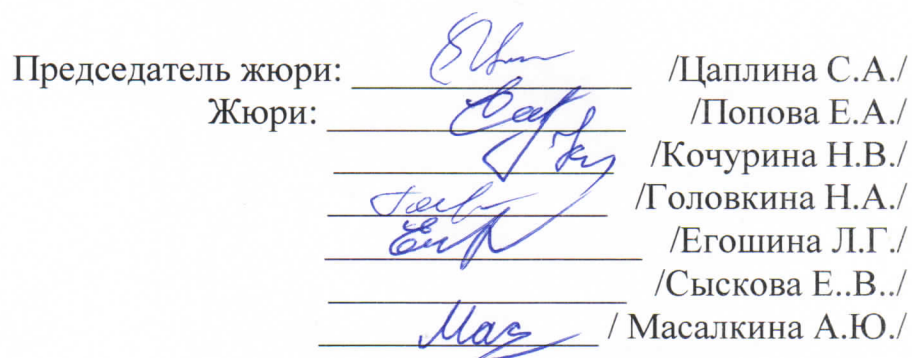 Председатель жюри: /Цаплина С.А./
Жюри: /Попова Е.А./
/Кочурина Н.В./
/Головкина Н.А./
/Егошина Л.Г./
/Сыскова Е..В../
/ Масалкина А.Ю./